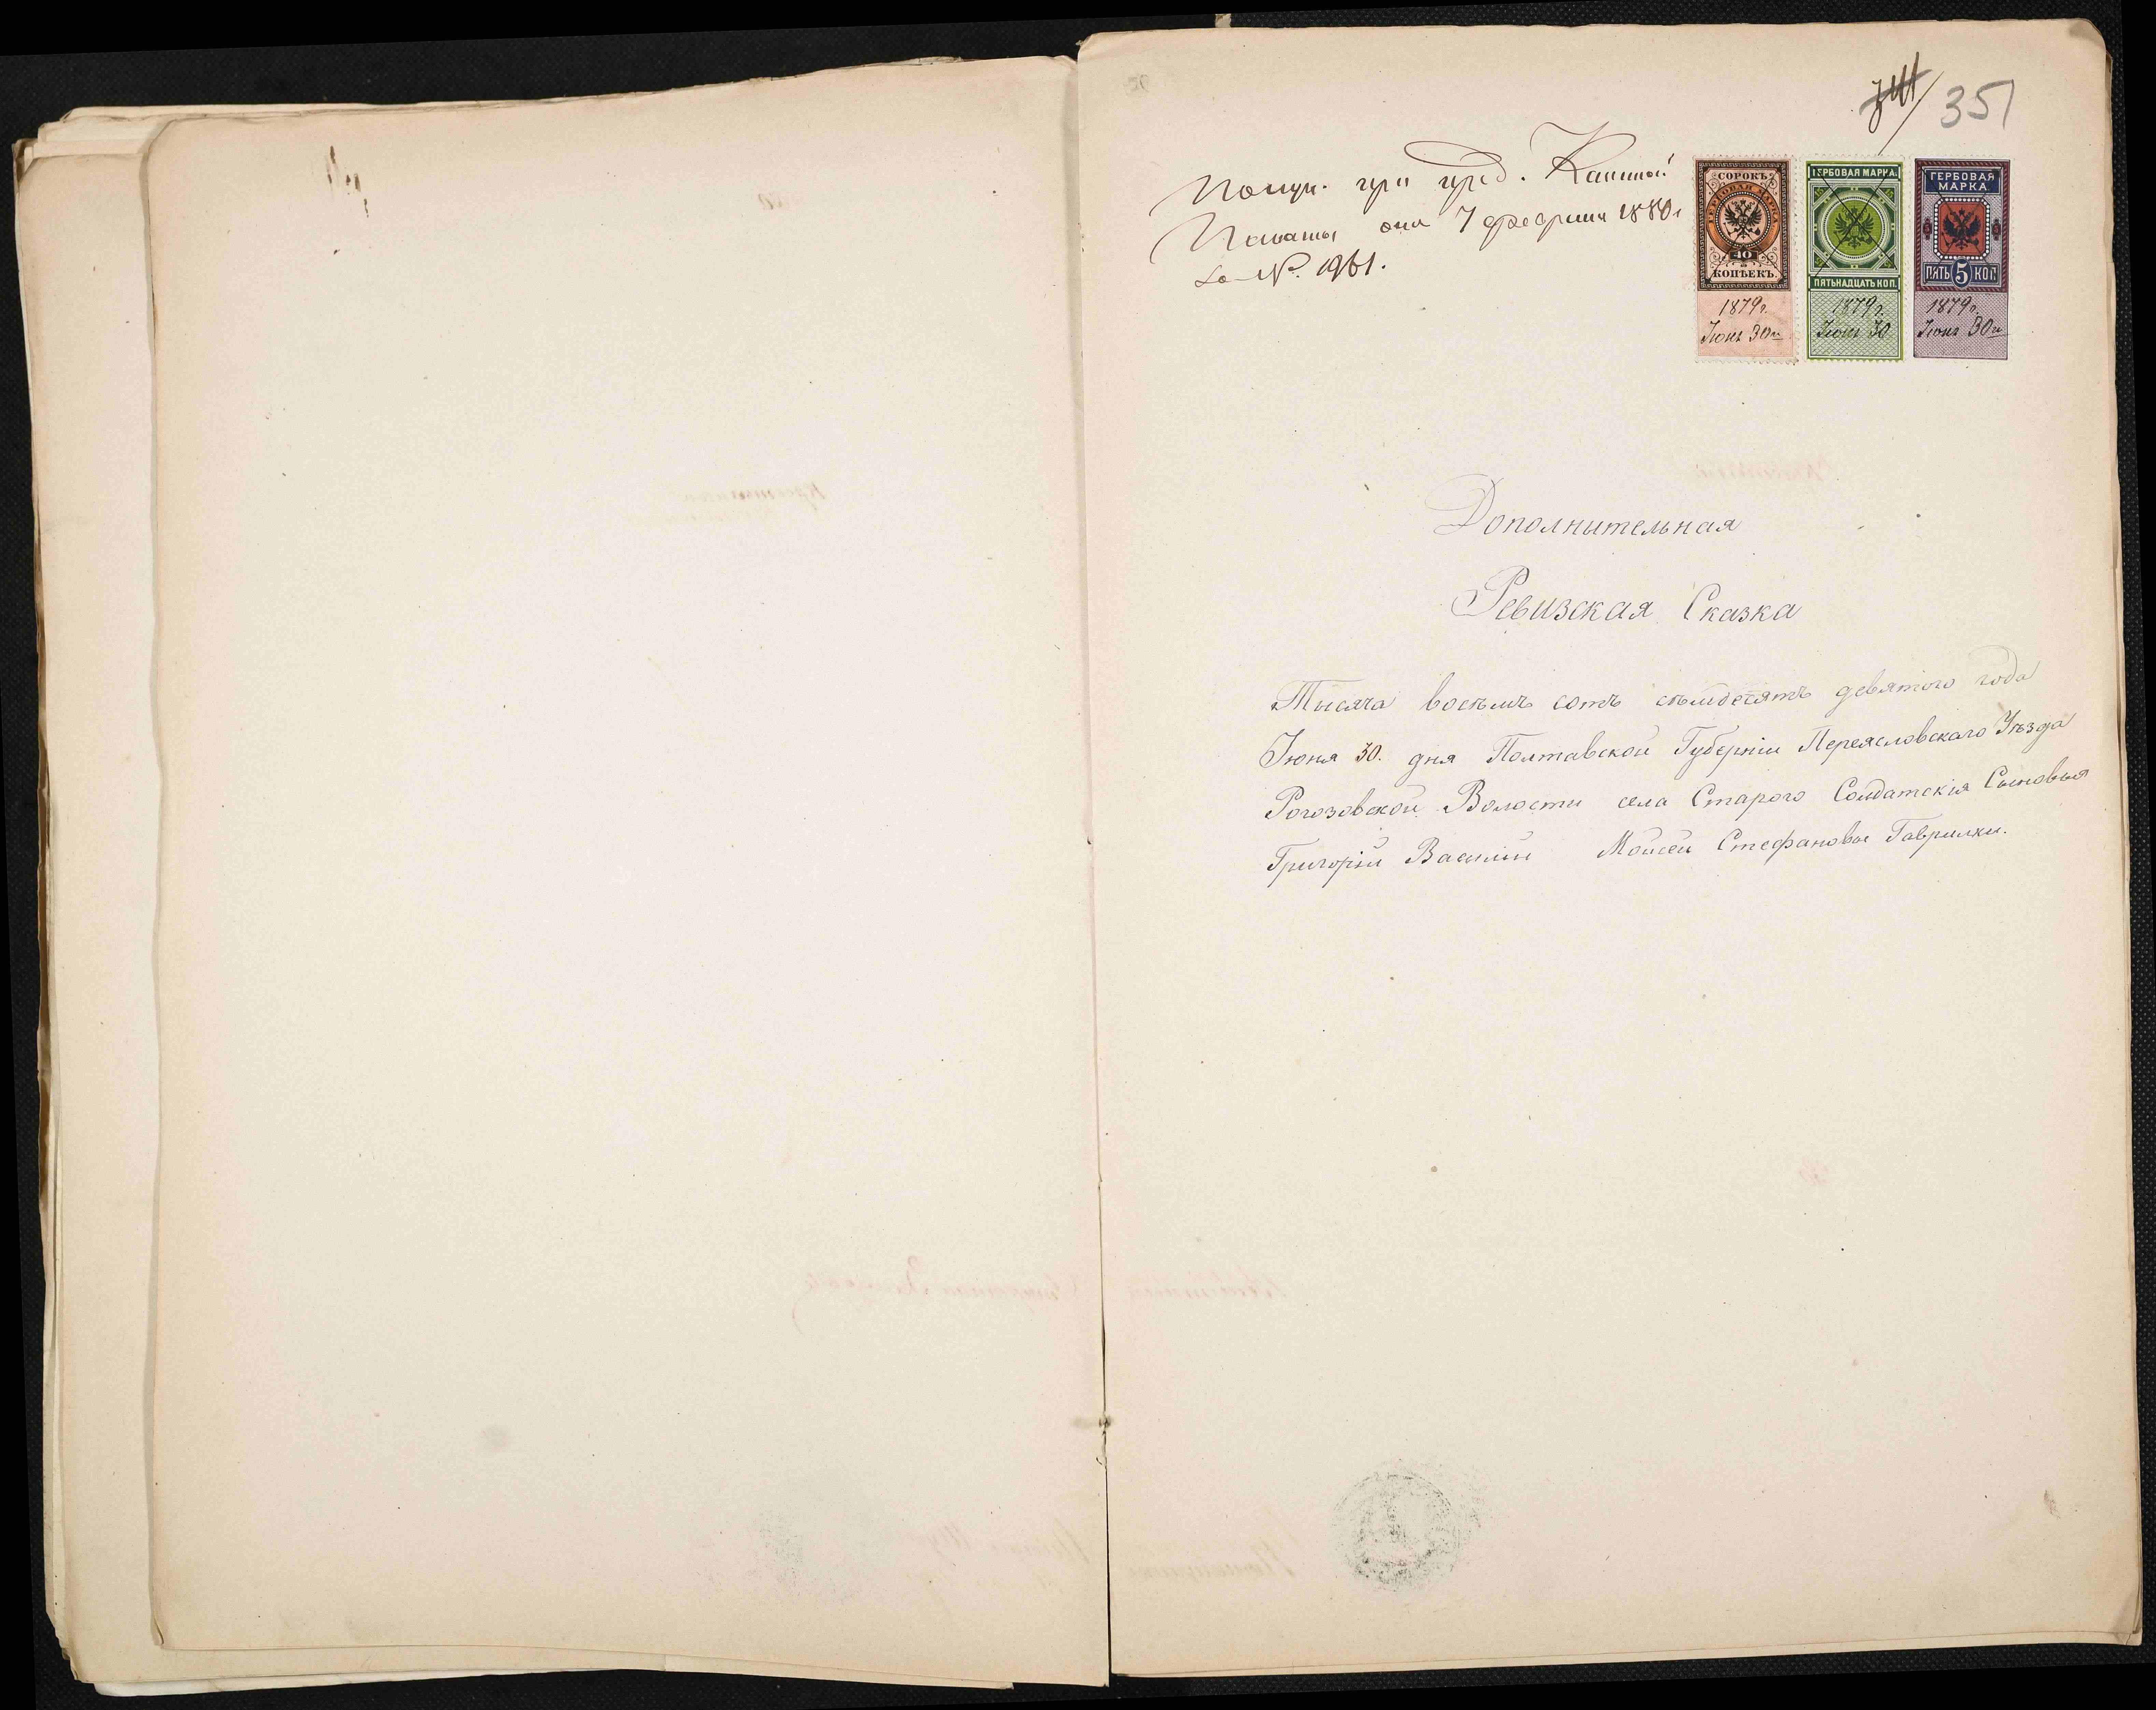 341/ 351
Получ. при пред. Казенной
Палаты отъ 7 февраля 1880 г
за №. 1961.
СОРОКЪ
ГЕРБОВАЯ МАРКА
40
КОПѢЕКЪ
1879 г.
Іюня 30 д
ГЕРБОВАЯ МАРКА.
ПЯТЬНАДЦАТЬ КОП.
1879 г.
Іюня 30
ГЕРБОВАЯ
МАРКА
ПЯТЬ 5 КОП
1879 г.
Іюня 30 д
Дополнительная
Ревизская Сказка
Тысяча восѣмъ сотъ сѣмдесятъ девятого года
Іюня 30. дня Полтавской Губерніи Переясловскаго Уѣзда
Рогозовской Волости села Старого Солдатскія Сыновья
Григорій Василій Мойсей Стефановы Гаврилки.